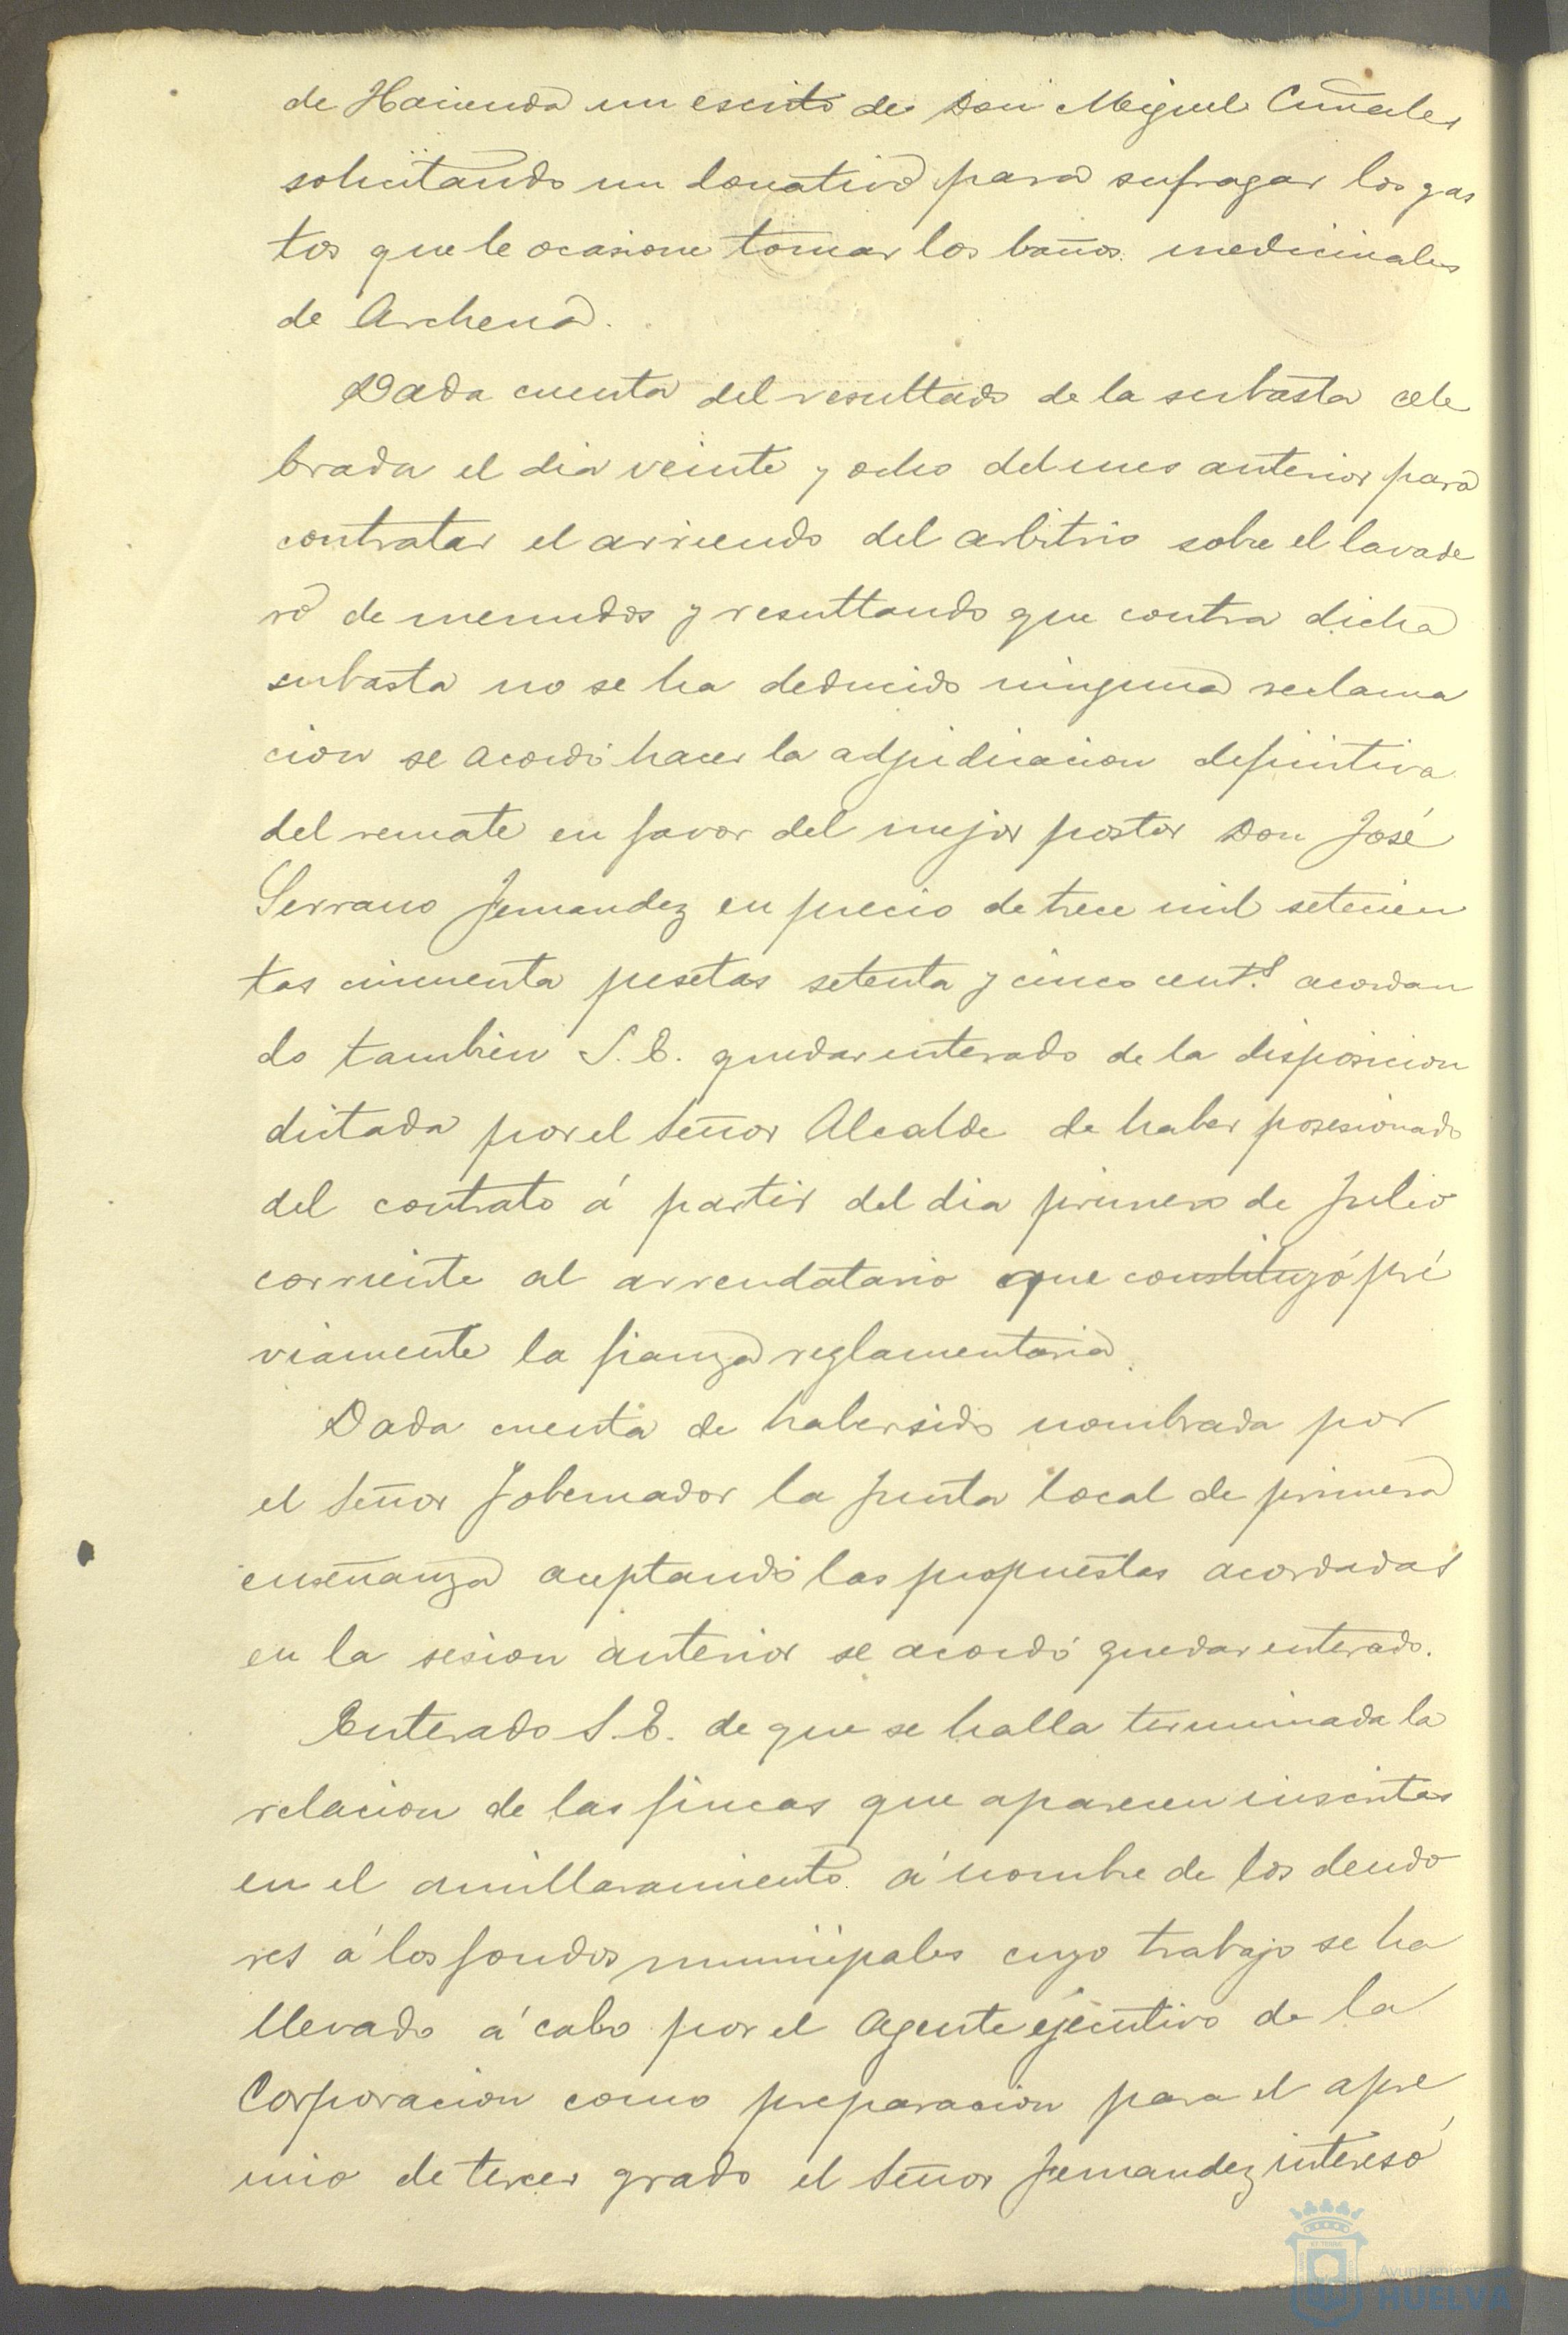 de Hacienda un escrito de Don Miguel
solicitando un donativo para sufragar los gas
tos que le ocasione tomar los baños medicinales
de Archena.
Dada cuenta del resultado de la subasta cele
brada el dia veinte y ocho del mes anterior para
contratar el arriendo del arbitrio sobre el lavade
ro de menudos y resultando que contra dicha
subasta no se ha deducido ninguna reclama
cion se acordó hacer la adjudicacion definitiva
del remate en favor del mejor postor Don José
Serrano Fernandez en precio de trece mil setecien
tas cincuenta pesetas setenta y cinco cent.s acordan
do tambien S. E. quedar enterado de la disposicion
dictada por el Señor Alcalde de haber posesionado
del contrato á partir del dia primero de Julio
corriente al arrendatario que constituyó pré
viamente la fianza reglamentaria.
Dada cuenta de haber sido nombrada por
el Señor Gobernador la Junta local de primera
enseñanza aceptando las propuestas acordadas
en la sesion anterior se acordó quedar enterado.
Enterado S. E. de que se halla terminada la
relacion de las fincas que aparecen inscritas
en el amillaramiento á nombre de los deudo
res á los fondos municipales cuyo trabajo se ha
llevado á cabo por el Agente ejecutivo de la
Corporacion como preparacion para el apre
mio de tercer grado el Señor Fernandez interesó
Ayuntamiento
HUELVA